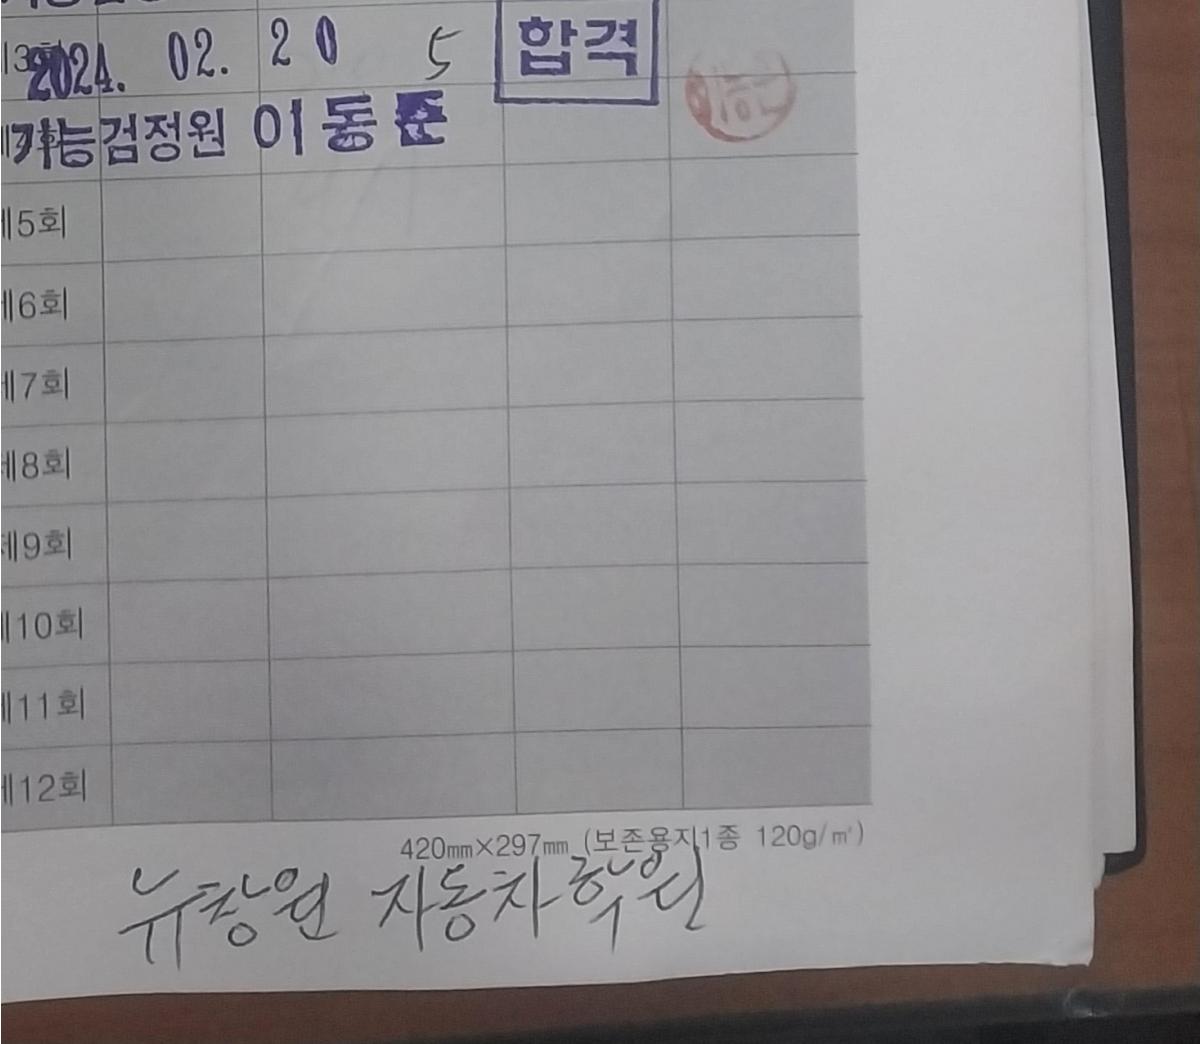 제3회 2024. 02. 20 5 합격
기능검정원 이동준
제5회
제6회
제7회
제8회
제9회
제10회
제11회
제12회
420㎜×297㎜ (보존용지1종 120g/㎡)
뉴창원 자동차학원